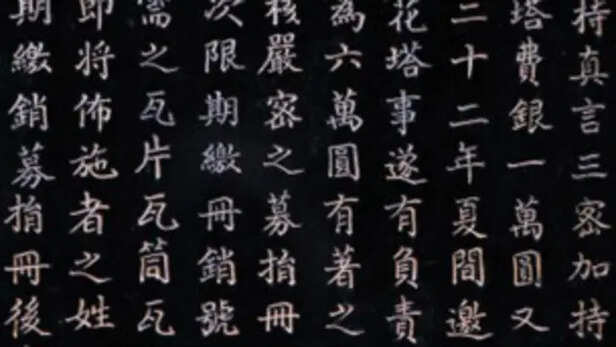 持真言三密加持
塔費銀一萬圓又
二十二年夏間邀
花塔事遂有負責
為六萬圓有著之
核嚴密之募捐冊
次限期繳冊銷號
需之瓦片瓦筒瓦
即將佈施者之姓
期繳銷募捐冊後